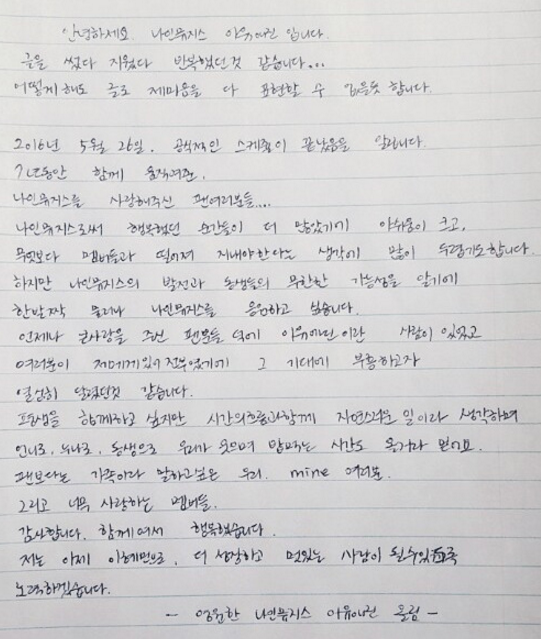 안녕하세요. 나인뮤지스 이유애린 입니다.
글을 썼다 지웠다 반복했던것 같습니다...
어떻게 해도 글로 제마음을 다 표현할 수 없을듯 합니다.
2016년 5월 26일. 공식적인 스케줄이 끝났음을 알립니다.
7년동안 함께 움직여준,
나인뮤지스를 사랑해주신 팬여러분들....
나인뮤지스로써 행복했던 순간들이 더 많았기에 아쉬움이 크고,
무엇보다 멤버들과 떨어져 지내야한다는 생각에 많이 두렵기도합니다.
하지만 나인뮤지스의 발전과 동생들의 무한한 가능성을 알기에
한발짝 물러나 나인뮤지스를 응원하고 싶습니다.
언제나 큰사랑을 주신 팬분들 덕에 이유애린 이란 사람이 있었고
여러분이 저에게있어 전부였기에 그 기대에 부흥하고자
열심히 달렸던것 같습니다.
평생을 함께하고 싶지만 시간의흐름과함께 자연스러운 일이라 생각하며
언니로, 누나로, 동생으로 우리가 웃으며 맘먹는 시간도 올거라 믿어요.
팬보다는 가족이라 말하고싶은 우리. mine 여러분.
그리고 너무 사랑하는 멤버들.
감사합니다. 함께여서 행복했습니다.
저는 이제 이혜민으로, 더 성장하고 멋있는 사람이 될수있도록
노력하겠습니다.
- 영원한 나인뮤지스 이유애린 올림 -